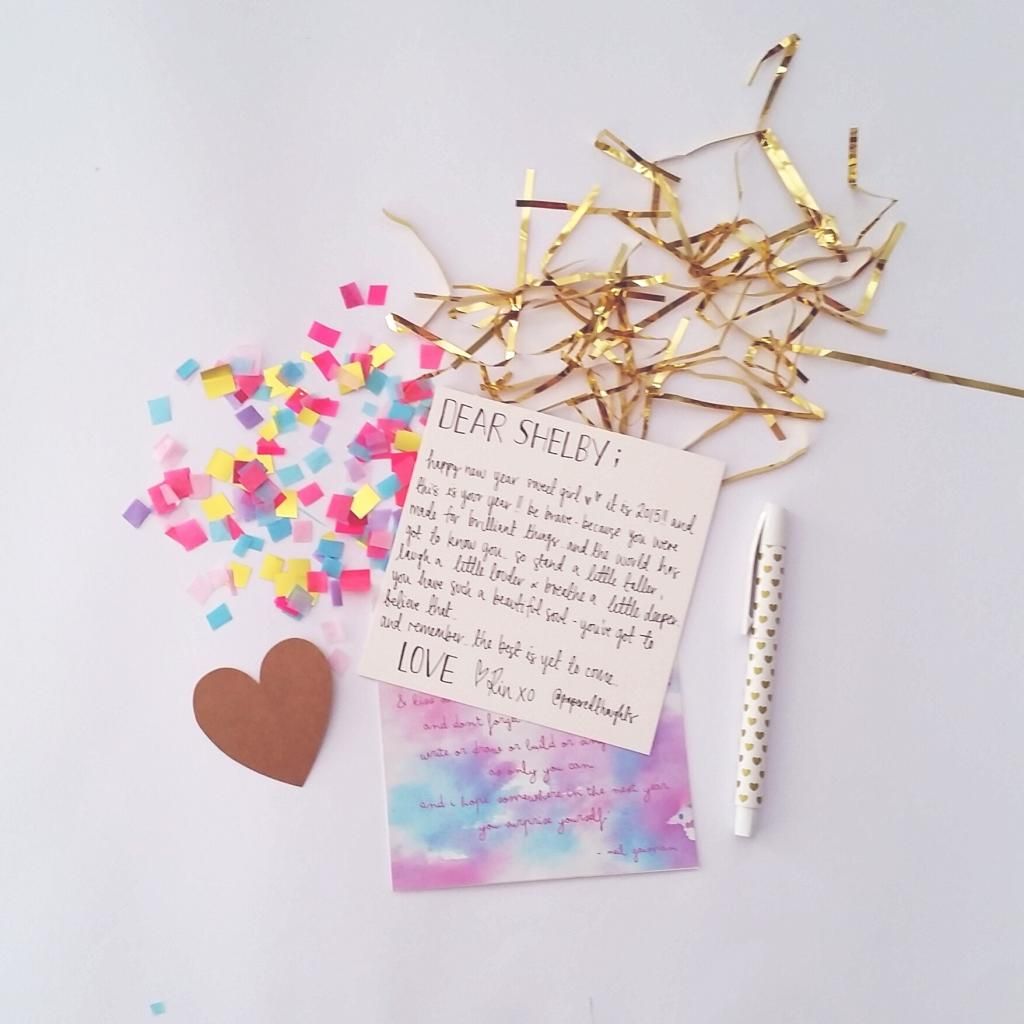 DEAR SHELBY;
happy new year sweet girl ♥♥ it is 2015!! and
this is your year!! be brave. because you were
made for brilliant things. and the world has
got to know you. so stand a little taller,
laugh a little louder & breathe a little deeper.
you have such a beautiful soul - you've got to
believe that..
and remember.. the best is yet to come..
LOVE ♡ Rin xo @paperedthoughts
& kiss
and dont forge
write or draw or build or any
as only you can
and i hope somewhere in the next year
you surprise yourself"
- neil gaiman